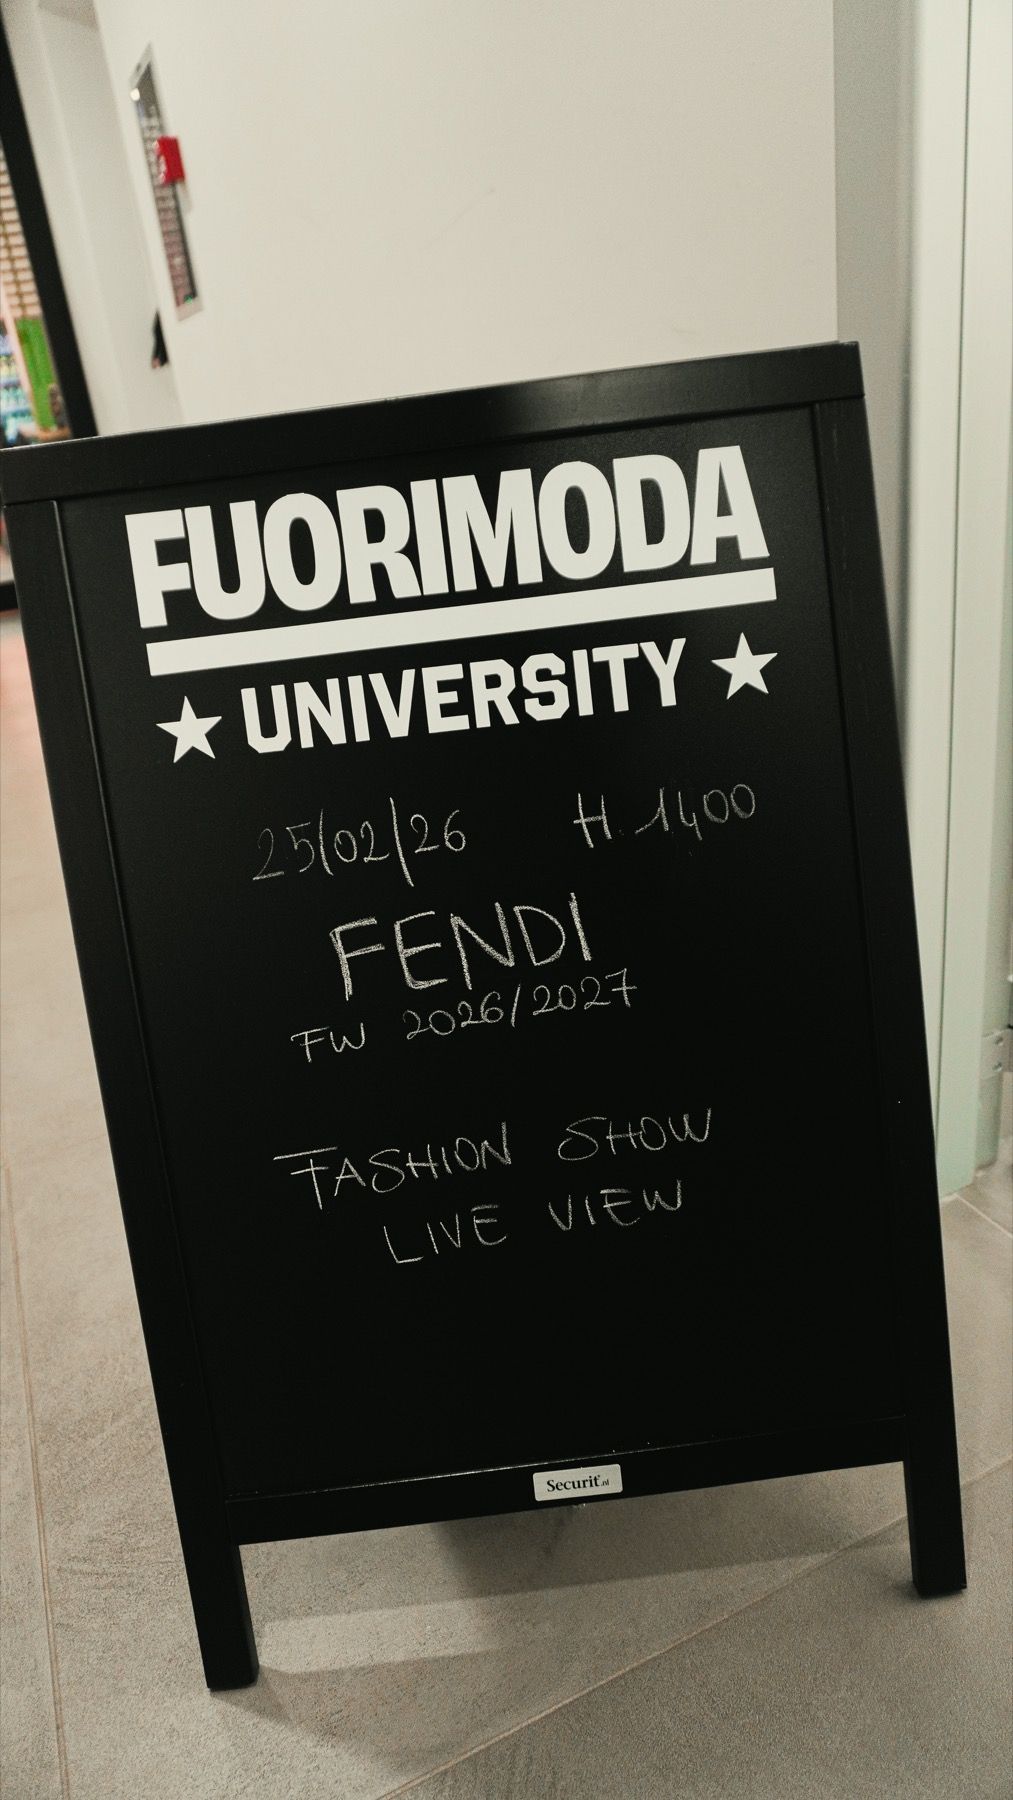 FUORIMODA
★ UNIVERSITY ★
25/02/26 H. 1400
FENDI
FW 2026/2027
FASHION SHOW
LIVE VIEW
Securit.nl